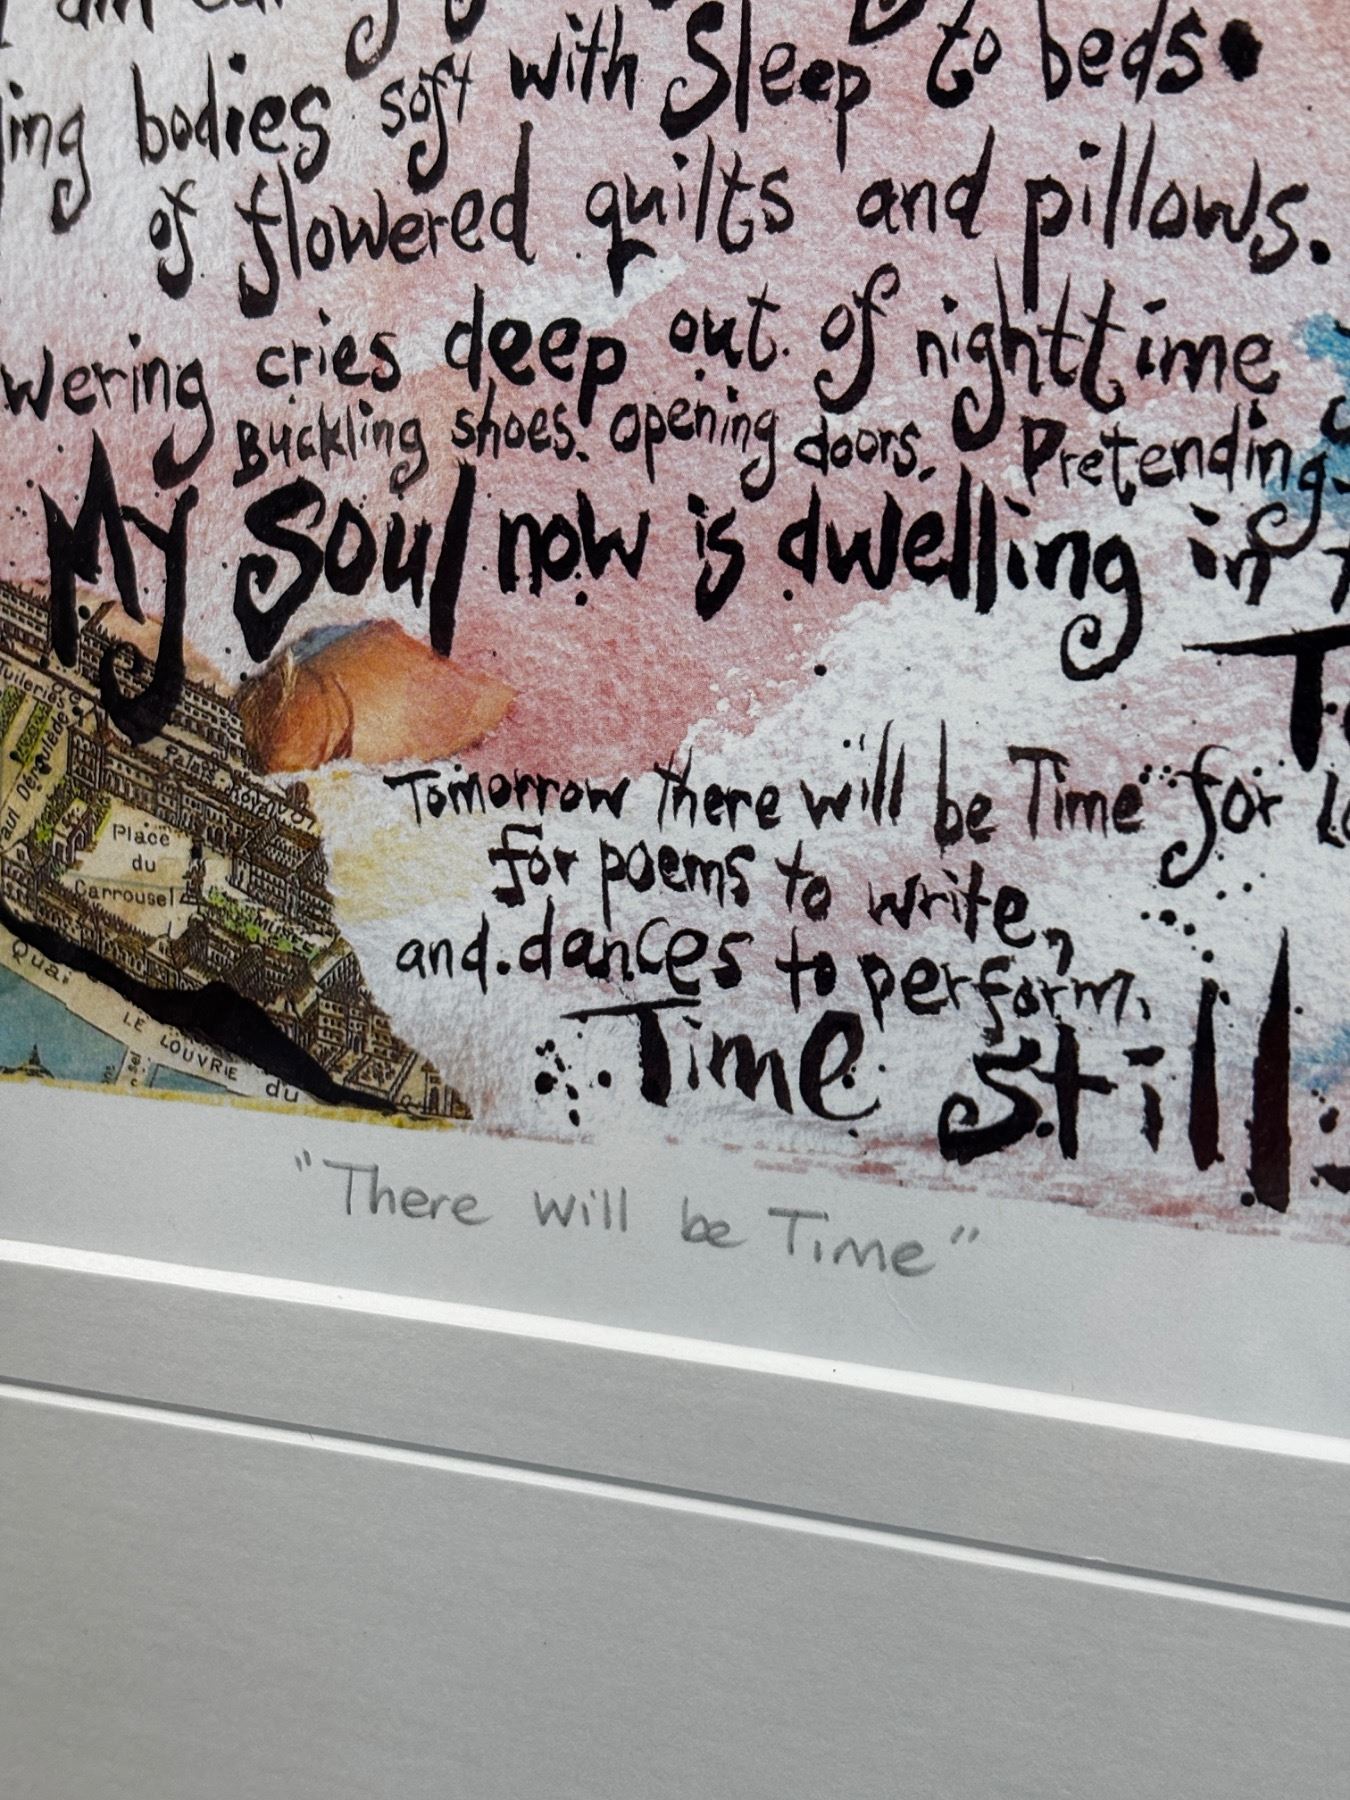 bodies soft with Sleep to beds.
of flowered quilts and pillows.
cries deep out of nighttime
Buckling shoes. opening doors. Pretending
My Soul now is dwelling in
Tomorrow there will be Time for
for poems to write,
and dances to perform.
Time Still
Tuileries
Palais Royal
Place
du
Carrousel
MUSÉE
Quai
LE LOUVRE
du
"There will be Time"